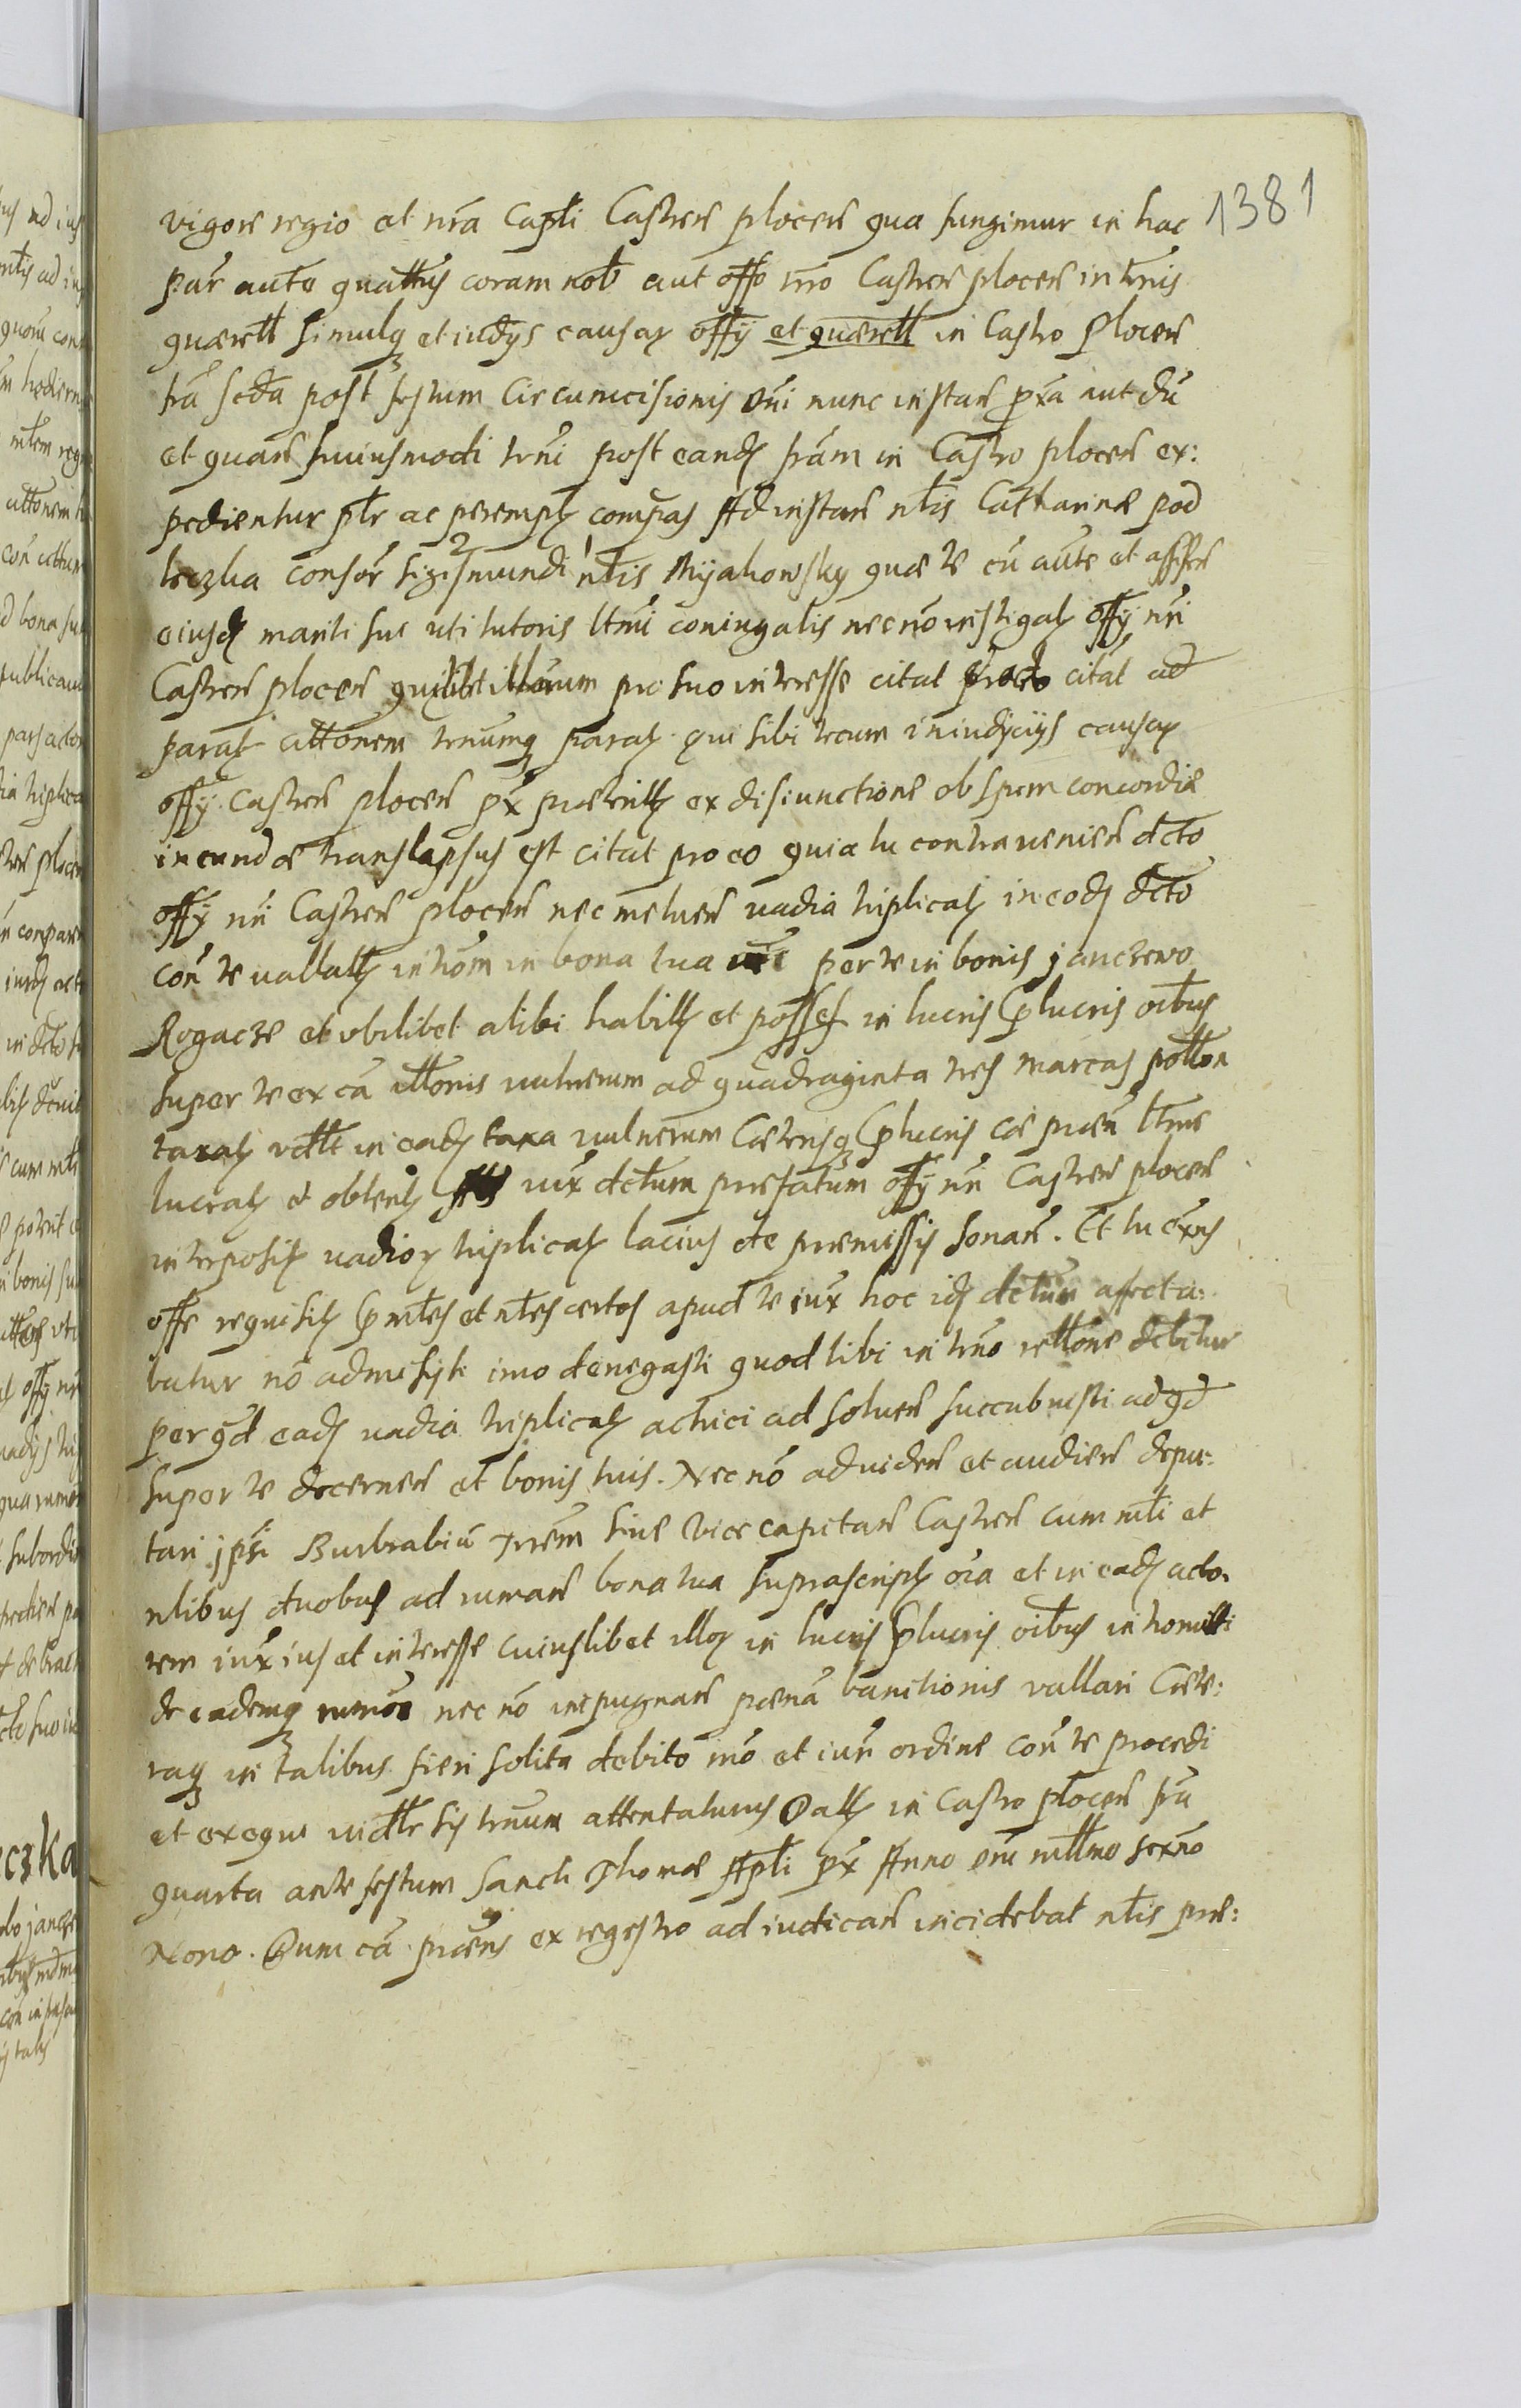 1381
vigore regio et nrã Capti Castren plocen qua fungimur in hac
par auto quattus coram nob aut offo nrõ Castren plocen in trnis
quærell simulq et iudys causar offy et quærell in Castro Plocen
frã scda post festum Circumcisionis Dni nunc instan pxa aut dũ
et quan huiusmodi trni post eand frãm in Castro plocen ex:
pedientur ptr ac perempt compas Ad instan nlis Catharinæ pod
leczka consor Sigismundi nlis Myakowsky quæ te cũ aute et assten
eiusd mariti sui uti tutoris ltmi coniugalis nec nõ instigat offy nri
Castren plocen quilibet illorum pro suo interesse citat citat ad
parat attonem trnumq parat qui sibi tecum in iudicys causar
offy Castren plocen px præterit ex disiunctione ob spem concordiæ
ineundæ translapsus est citat pro eo quia tu contraueniens dcto
offy nri Castren plocen nec metuen uadia triplicat in eod dcto
con te uallatt introm in bona tua per te in bonis janczewo
Rogacze et vbilibet alibi habitt et posses in lucris plucris oibus
super te ex cã attonis uulnerum ad quadraginta tres marcas potton
taxat vctt in ead taxa uulnerum Cæterisq plucris cõe præn ltme
lucrat et obtent iux dctum præfatum offy nri Castren plocen
interposit uadior triplicat latius de premissis sonan. Et tu
offo requisit p mtes et nles certos apud te iux hoc id dctum affecta:
batur nõ admisisti imo denegasti quod tibi in trno rettone dcbitur
per qd ead uadia triplicat actrici ad soluen succubuisti ad qd
super te decernen et bonis tuis. Nec nõ ad viden et audien depu:
tari jpsi Burkrabiũ Trrem siue Vice capitan Castren cum mli et
nlibus duobus ad ruman bona tua suprascript oia et in ead acto.
rem iux ius et interesse cuiuslibet illor in lucris plucris oibus intromitti
de eademq rumõe nec nõ inpugnan pænã bannitionis vallari Cæte:
raq in talibus fieri solita debito mõ et iurn ordine con te procedi
et exequi vidtr sis trnum attentaturus Datt in Castro plocen frã
quarta ante festum Sancti Thomæ Apti px Anno Dni mlltmo sexno
Nono. Dum cã præns ex regestro ad iudican incidebat nlis præ: